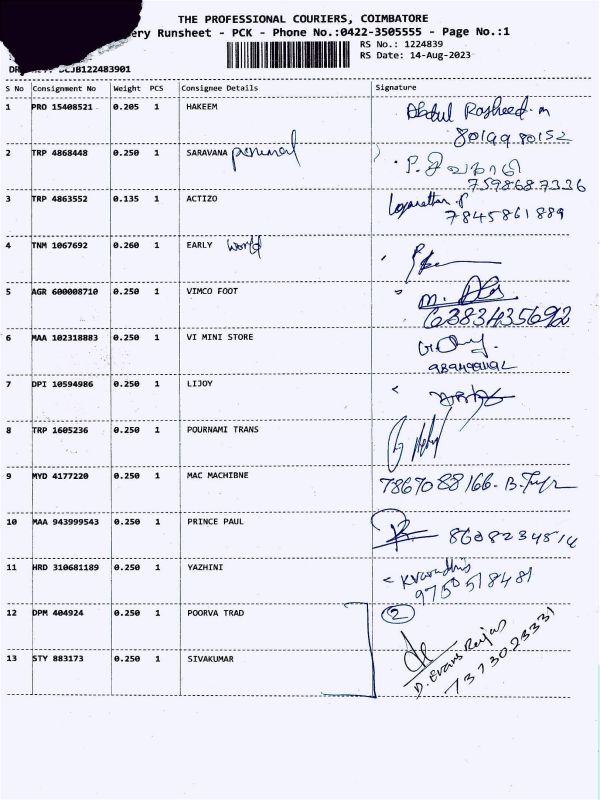 THE PROFESSIONAL COURIERS, COIMBATORE
ery Runsheet - PCK - Phone No.:0422-3505555 - Page No.:1
RS No.: 1224839
RS Date: 14-Aug-2023
JB122483901
S No Consignment No Weight PCS Consignee Details Signature
1 PRO 15408521 0.205 1 HAKEEM Abdul Rasheed. m
80199 80152
2 TRP 4868448 0.250 1 SARAVANA
7598687336
3 TRP 4863552 0.135 1 ACTIZO
7845861889
4 TNM 1067692 0.260 1 EARLY world
5 AGR 600008710 0.250 1 VIMCO FOOT
6383435692
6 MAA 102318883 0.250 1 VI MINI STORE
7 DPI 10594986 0.250 1 LIJOY
8 TRP 1605236 0.250 1 POURNAMI TRANS
9 MYD 4177220 0.250 1 MAC MACHIBNE 7867088166.
10 MAA 943999543 0.250 1 PRINCE PAUL
11 HRD 310681189 0.250 1 YAZHINI
9750518481
12 DPM 404924 0.250 1 POORVA TRAD 2
13 STY 883173 0.250 1 SIVAKUMAR
D. Evans Rajas
7373023331